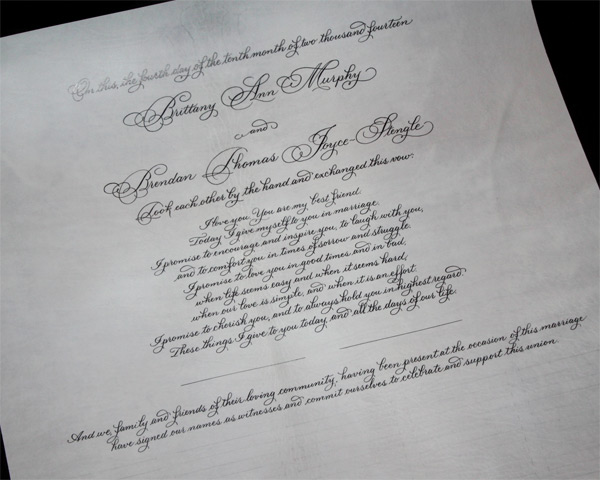 On this, the fourth day of the tenth month of two thousand fourteen
Brittany Ann Murphy
and
Brendan Thomas Joyce-Stengle
Took each other by the hand and exchanged this vow:
I love you. You are my best friend.
Today I give myself to you in marriage.
I promise to encourage and inspire you, to laugh with you,
and to comfort you in times of sorrow and struggle.
I promise to love you in good times and in bad,
when life seems easy and when it seems hard,
when our love is simple, and when it is an effort.
I promise to cherish you, and to always hold you in highest regard.
These things I give to you today, and all the days of our life.
And we, family and friends of their loving community, having been present at the occasion of this marriage
have signed our names as witnesses and commit ourselves to celebrate and support this union.